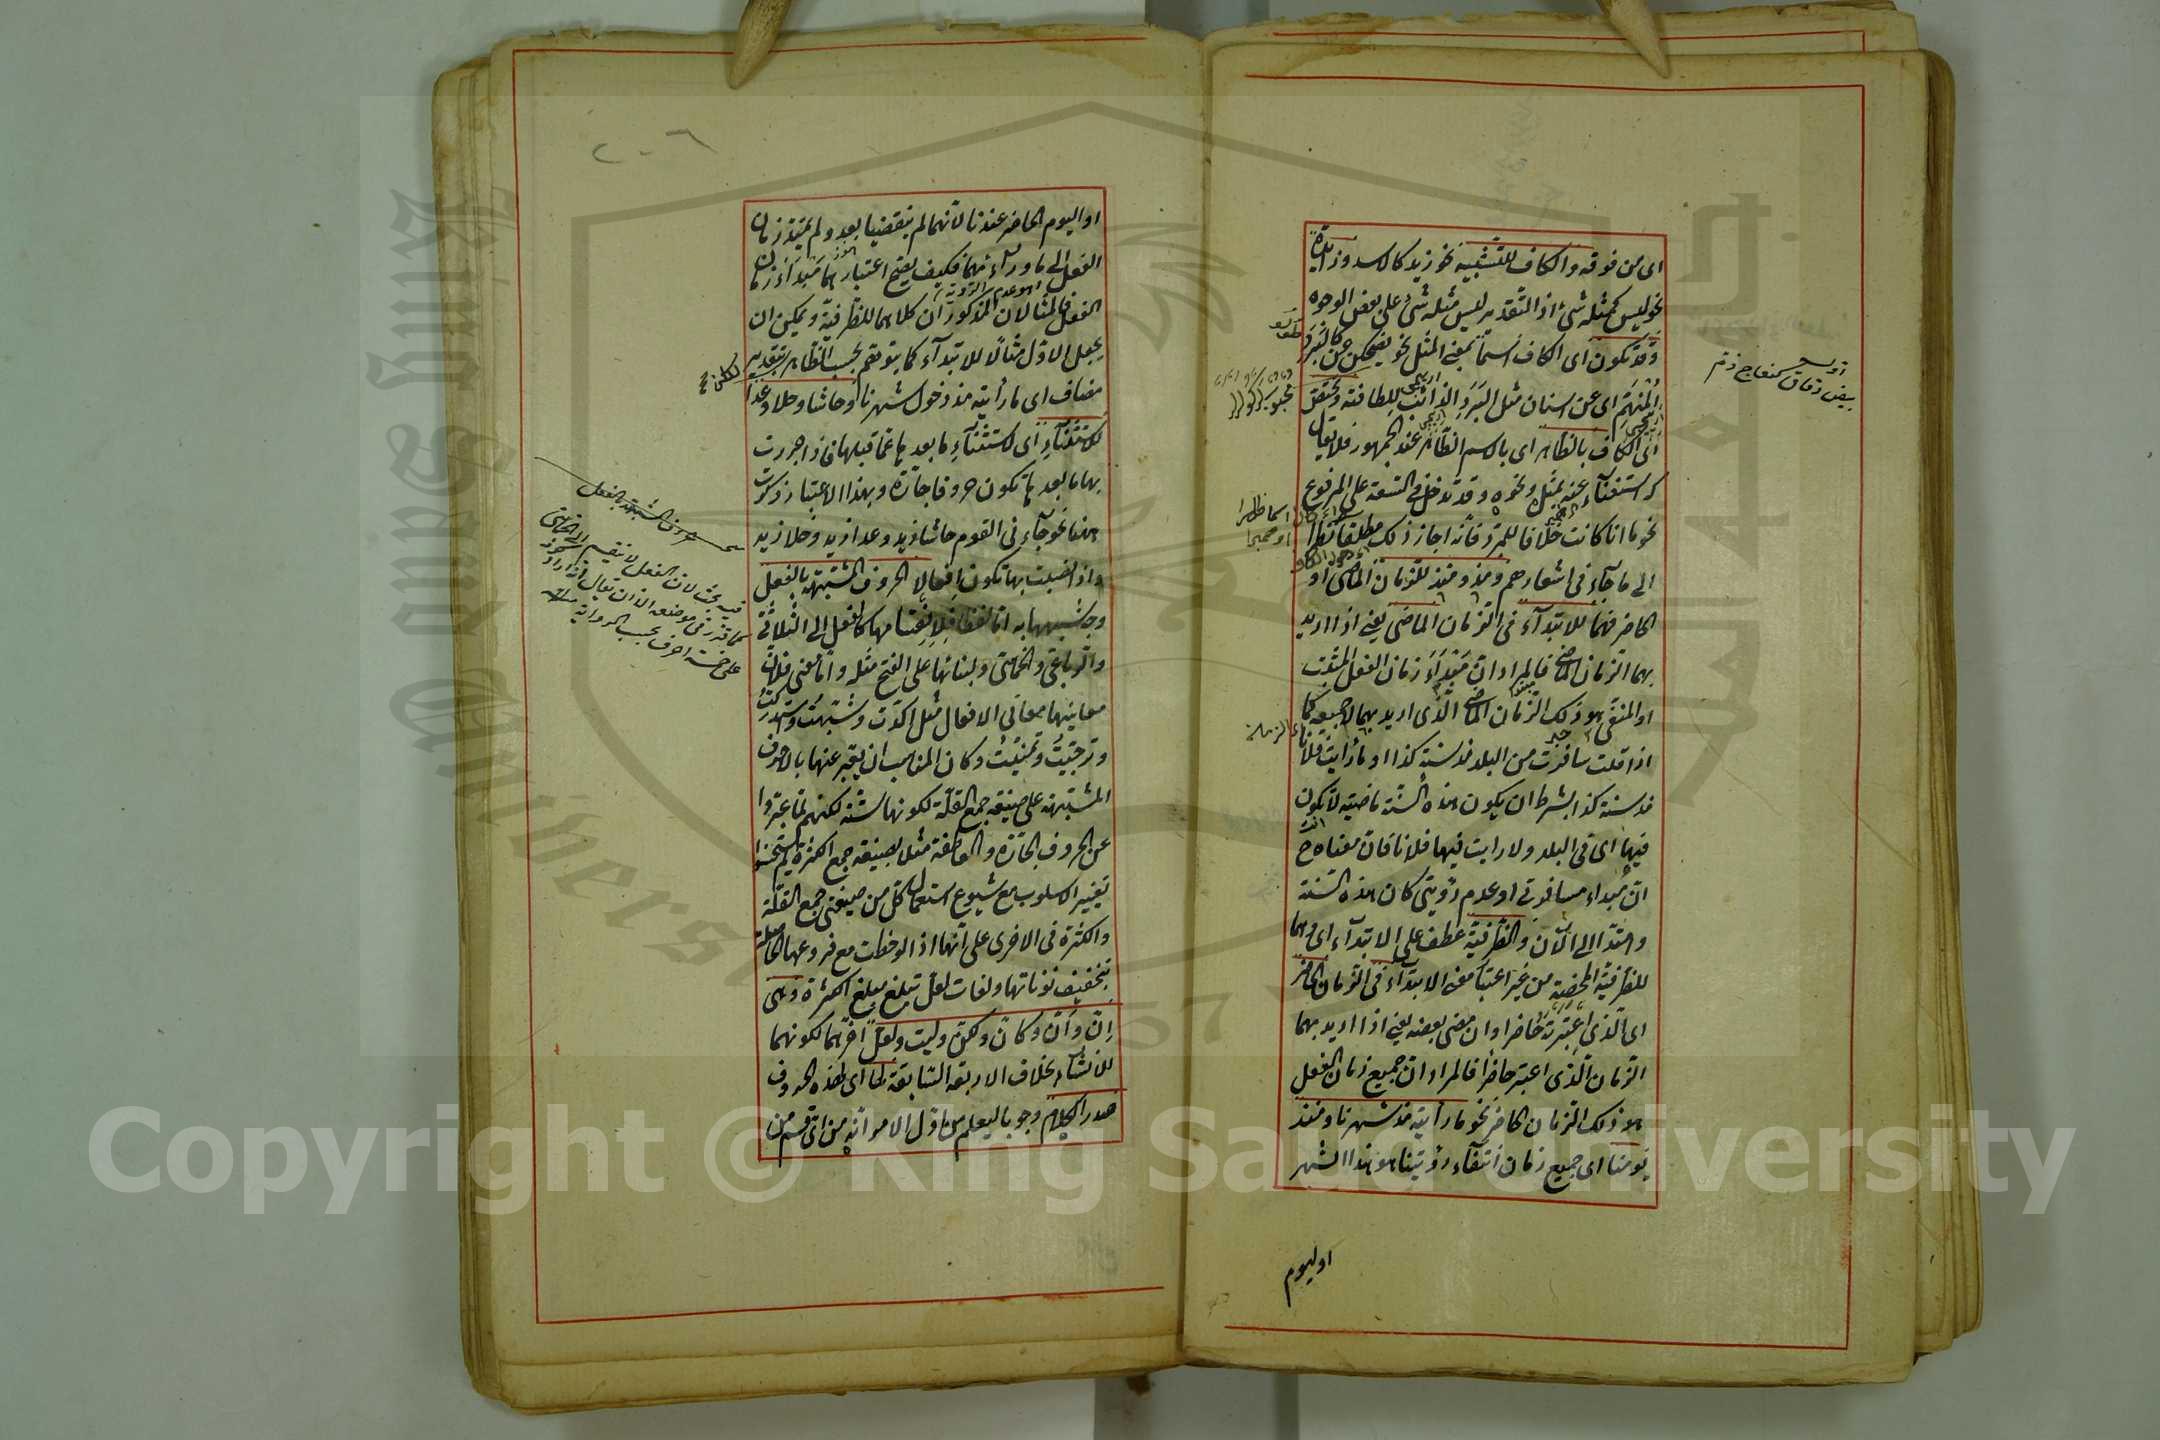 اى من فوقه والكاف للتشبيه نحو زيد كالاسد وزائدة
نحو ليس كمثله شئ اذ التقدير ليس مثله شئ على بعض الوجوه
وقد تكون اى الكاف اسما بمعنى المثل نحو يضحكن عن كالبرد
المنهم اى عن اسنان مثل البرد الذائب للطافته وتختص
اى الكاف بالظاهر اى بالاسم الظاهر عند الجمهور فلا يقال
كه استغناء عنه بمثل ونحوه وقد تدخل فى السعة على المرفوع
نحو ما انا كانت خلافا للمبرد فانه اجاز ذلك مطلقا نظرا
الى ما جاء فى اشعارهم ومذ ومنذ للزمان الماضى او
الحاضر فهما للابتداء فى الزمان الماضى يعنى اذا اريد
بهما الزمان الماضى فالمراد ان مبتدأ زمان الفعل المثبت
او المنفى هو ذلك الزمان الماضى الذى اريد بهما لا جميعه كما
اذا قلت سافرت من البلد مذ سنة كذا او ما رأيت فلانا
مذ سنة كذا بشرط ان يكون هذه السنة ماضية لا تكون
فيها اى فى البلد ولا رايت فيها فلانا فان معناه ح
ان مبداء مسافرتى او عدم رؤيتى كان هذه السنة
وامتد الى الآن والظرفية عطف على الابتداء اى وهما
للظرفية المحضة من غير اعتبار معنى الابتداء فى الزمان الحاضر
اى الذى اعتبرته حاضرا وان مضى بعضه يعنى اذا اريد بهما
الزمان الذى اعتبر حاضرا فالمراد ان جميع زمان الفعل
هو ذلك الزمان الحاضر نحو ما رأيته مذ شهرنا ومنذ
يومنا اى جميع زمان انتفاء رؤيتنا هو هذا الشهر
اوليوم
او اليوم الحاضر عندنا لانهما لم ينقضيا بعد ولم يمتد زمان
الفعل الى ما وراءهما فكيف يصح اعتبارهما مبدأ زمان
الفعل فالمثالان المذكوران كلاهما للظرفية ويمكن ان
يجعل الاول مثالا للابتداء كما يتوهم بحسب الظاهر بتقدير
مضاف اى ما رأيته مذ دخول شهرنا وحاشا وخلا وعدا
للاستثناء اى لاستثناء ما بعدها عما قبلها فاذا جررت
بها ما بعدها تكون حروفا جارة وبهذا الاعتبار ذكرت
هنا نحو جاءنى القوم حاشا زيد وعدا زيد وخلا زيد
واذا نصبت بها تكون افعالا الحروف المشبهة بالفعل
وجه شبهها به اما لفظا فلانقسامها كالفعل الى الثلاثى
والرباعى والخماسى ولبنائها على الفتح مثله واما معنى فلان
معانيها معانى الافعال مثل اكدت وشبهت واستدركت
وترجيت وتمنيت وكان المناسب ان يعبر عنها بالاحرف
المشبهة على صيغة جمع القلة لكونها ستة لكنهم لما عبروا
عن الحروف الجارة والعاطفة مثلا بصيغة جمع الكثرة لم يستحسنوا
تغيير الاسلوب مع شيوع استعمال كل من صيغتى جمع القلة
والكثرة فى الاخرى على انها اذا لوحظت مع فروعها الحاصلة
بتخفيف نوناتها ولغات لعل تبلغ مبلغ الكثرة وهى
ان وان وكان ولكن وليت ولعل اخرهما لكونهما
للانشاء بخلاف الاربعة السابقة لها اى لهذه الحروف
صدر الكلام وجوبا ليعلم من اول الامر انه من اى قسم من
حروف المشبهة بالفعل
فيه بحث لان الفعل لا ينقسم الى الخماسى